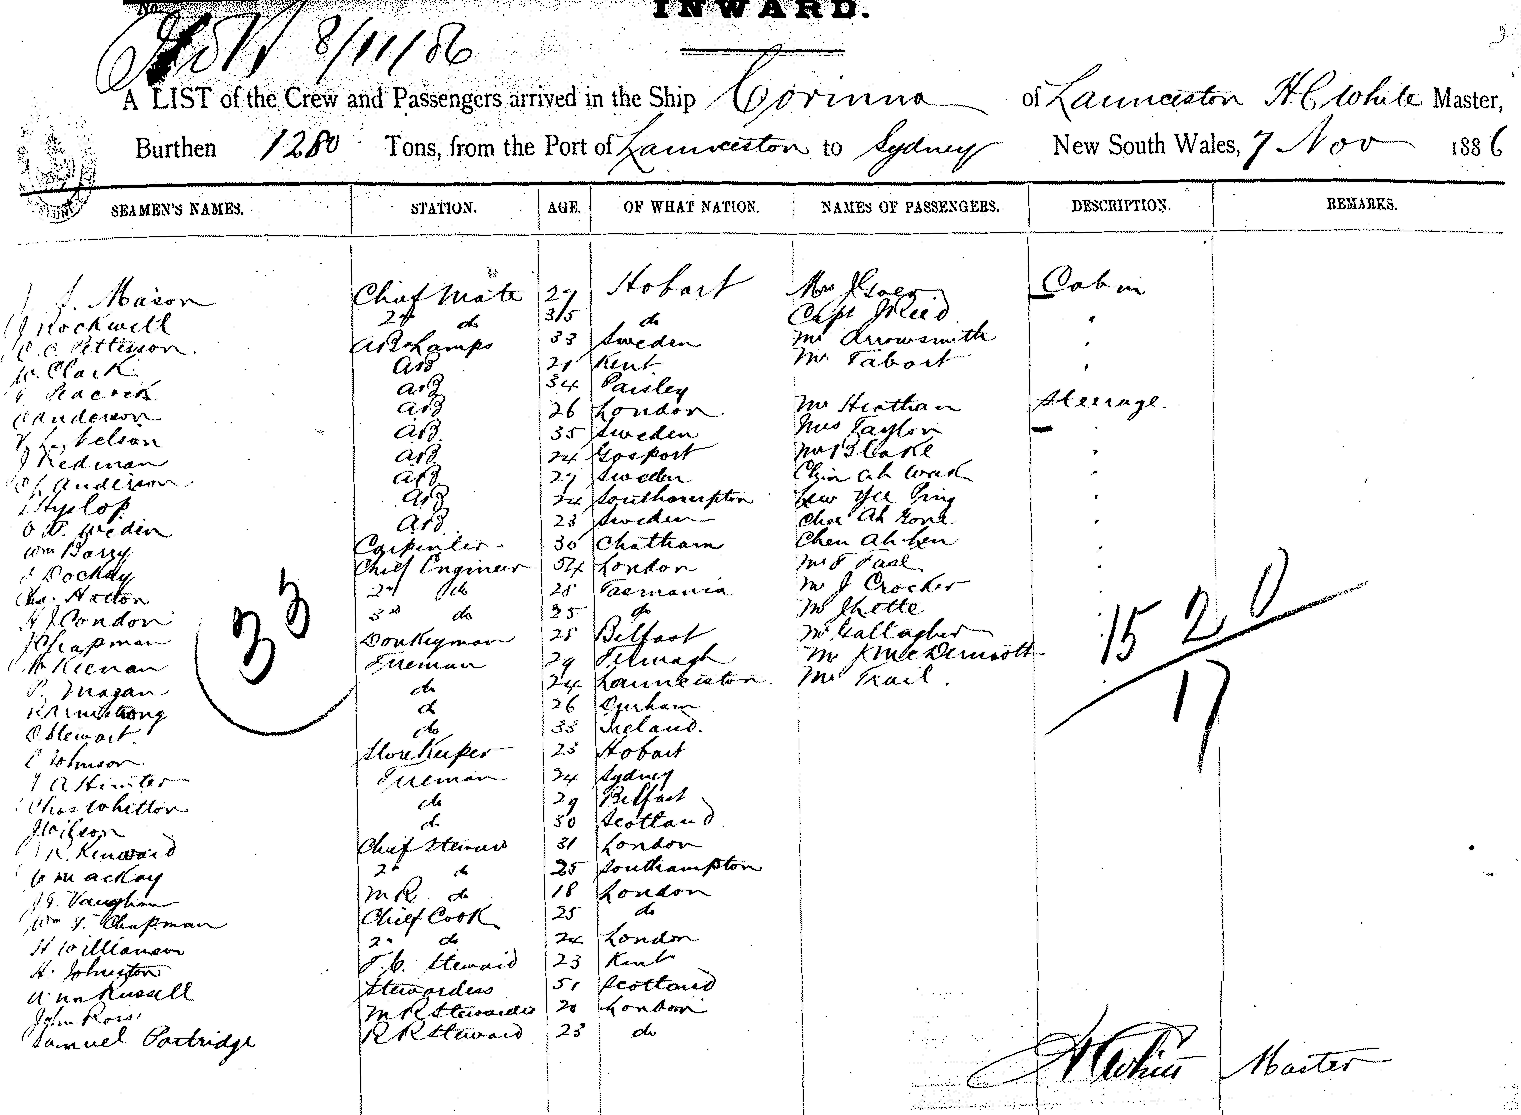 No.
INWARD.
8/11/86
A LIST of the Crew and Passengers arrived in the Ship Corinna of Launceston H C White Master,
Burthen 1280 Tons, from the Port of Launceston to Sydney New South Wales, 7 Nov 1886
SEAMEN'S NAMES. STATION. AGE. OF WHAT NATION. NAMES OF PASSENGERS. DESCRIPTION. REMARKS.
J. Mason Chief Mate 29 Hobart Cabin
J Rockwell 2nd do 35 do Capt J Reid "
Petterson AB & Lamps 33 Sweden Mr Arrowsmith "
W. Clark AB 21 Kent Mr Tabart "
Peacock AB 34 Paisley
Anderson AB 26 London Mr Heatham Steerage
Nelson AB 35 Sweden Mrs Taylor "
J Redman AB 24 Gosport Mr Blake "
Anderson AB 29 Sweden Ah "
Hyslop AB 24 Southampton Yee Ping "
Weden AB 23 Sweden Ah "
Wm Barry Carpenter 30 Chatham Chen Ah "
Dockay Chief Engineer 54 London "
Chas. Hatton 2nd do 28 Tasmania Mr J Crocher "
H J. Condon 3rd do 35 do "
J Chapman Donkeyman 28 Belfast Mr Gallagher
Kienan Fireman 29 Mr J McDermott
P. Magan do 24 Launceston Mr Trail.
R Armstrong do 26 Durham
D Stewart. do 33 Ireland.
Johnson Storekeeper 23 Hobart
A Hunter Fireman 24 Sydney
Chas Whitton do 29 Belfast
J Wilson do 30 Scotland
R. Kenward Chief Steward 31 London
Mackay 2nd do 25 Southampton
Vaughan M R do 18 London
Wm Y. Chapman Chief Cook 25 do
H Williamson 2nd do 24 London
H. Johnston F. C. Steward 23 Kent
Ann Russell Stewardess 51 Scotland
John Ross M R Steward 20 London
Samuel Partridge R R Steward 23 do
33
15 2 0
17
H C White Master